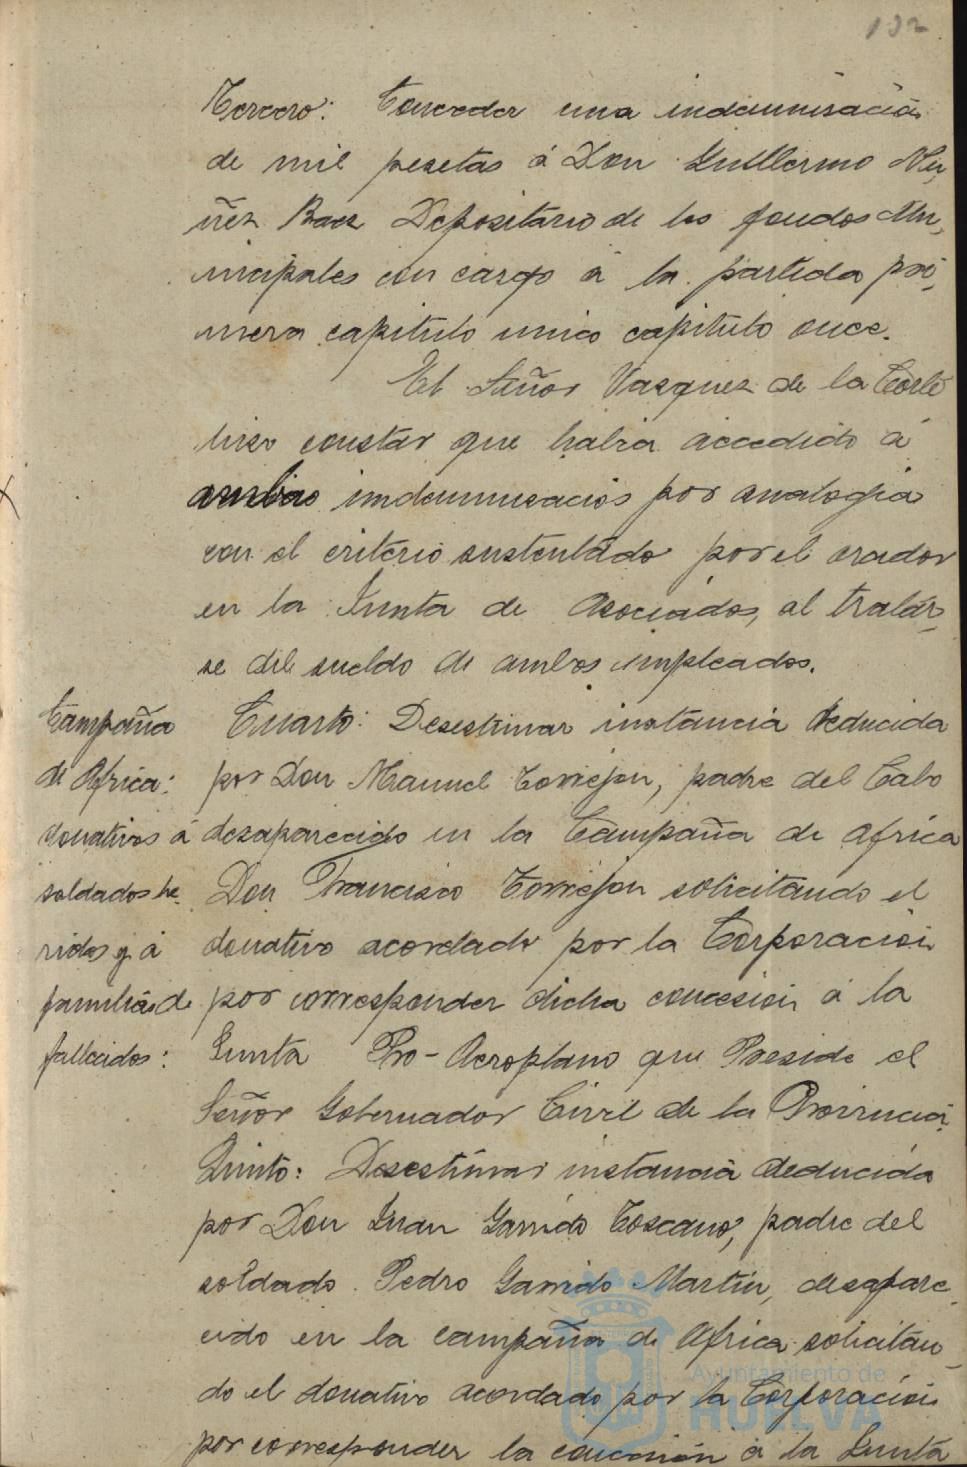 132
Tercero: Conceder una indemnisación
de mil pesetas á Don Guillermo Nu,
ñez Baez Depositario de los fondos Mu,
nicipales con cargo á la partida pri,
mera capitulo unico capitulo once.
El Señor Vazquez de la Corte
hizo constar que habia accedido á
ambas indemnisaciós por analogia
con el criterio sustentado por el orador
en la Junta de Asociados, al tratár,
se del sueldo de ambos empleados.
Campaña
de Africa:
donativos á
soldados he,
ridos y á
familias de
fallecidos:
Cuarto: Desestimar instancia deducida
por Don Manuel Torrejon, padre del Cabo
desaparecido en la Campaña de Africa
Don Francisco Torrejon solicitando el
donativo acordado por la Corporación
por corresponder dicha concesión á la
Junta Pro-Aeroplano que Preside el
Señor Gobernador Civil de la Provincia.
Quinto: Desestimar instancia deducida
por Don Juan Garrido Toscano, padre del
soldado Pedro Garrido Martin, desapare,
cido en la campaña de Africa solicitan,
do el donativo acordado por la Corporación
por corresponder la concesión á la Junta
Ayuntamiento de
HUELVA